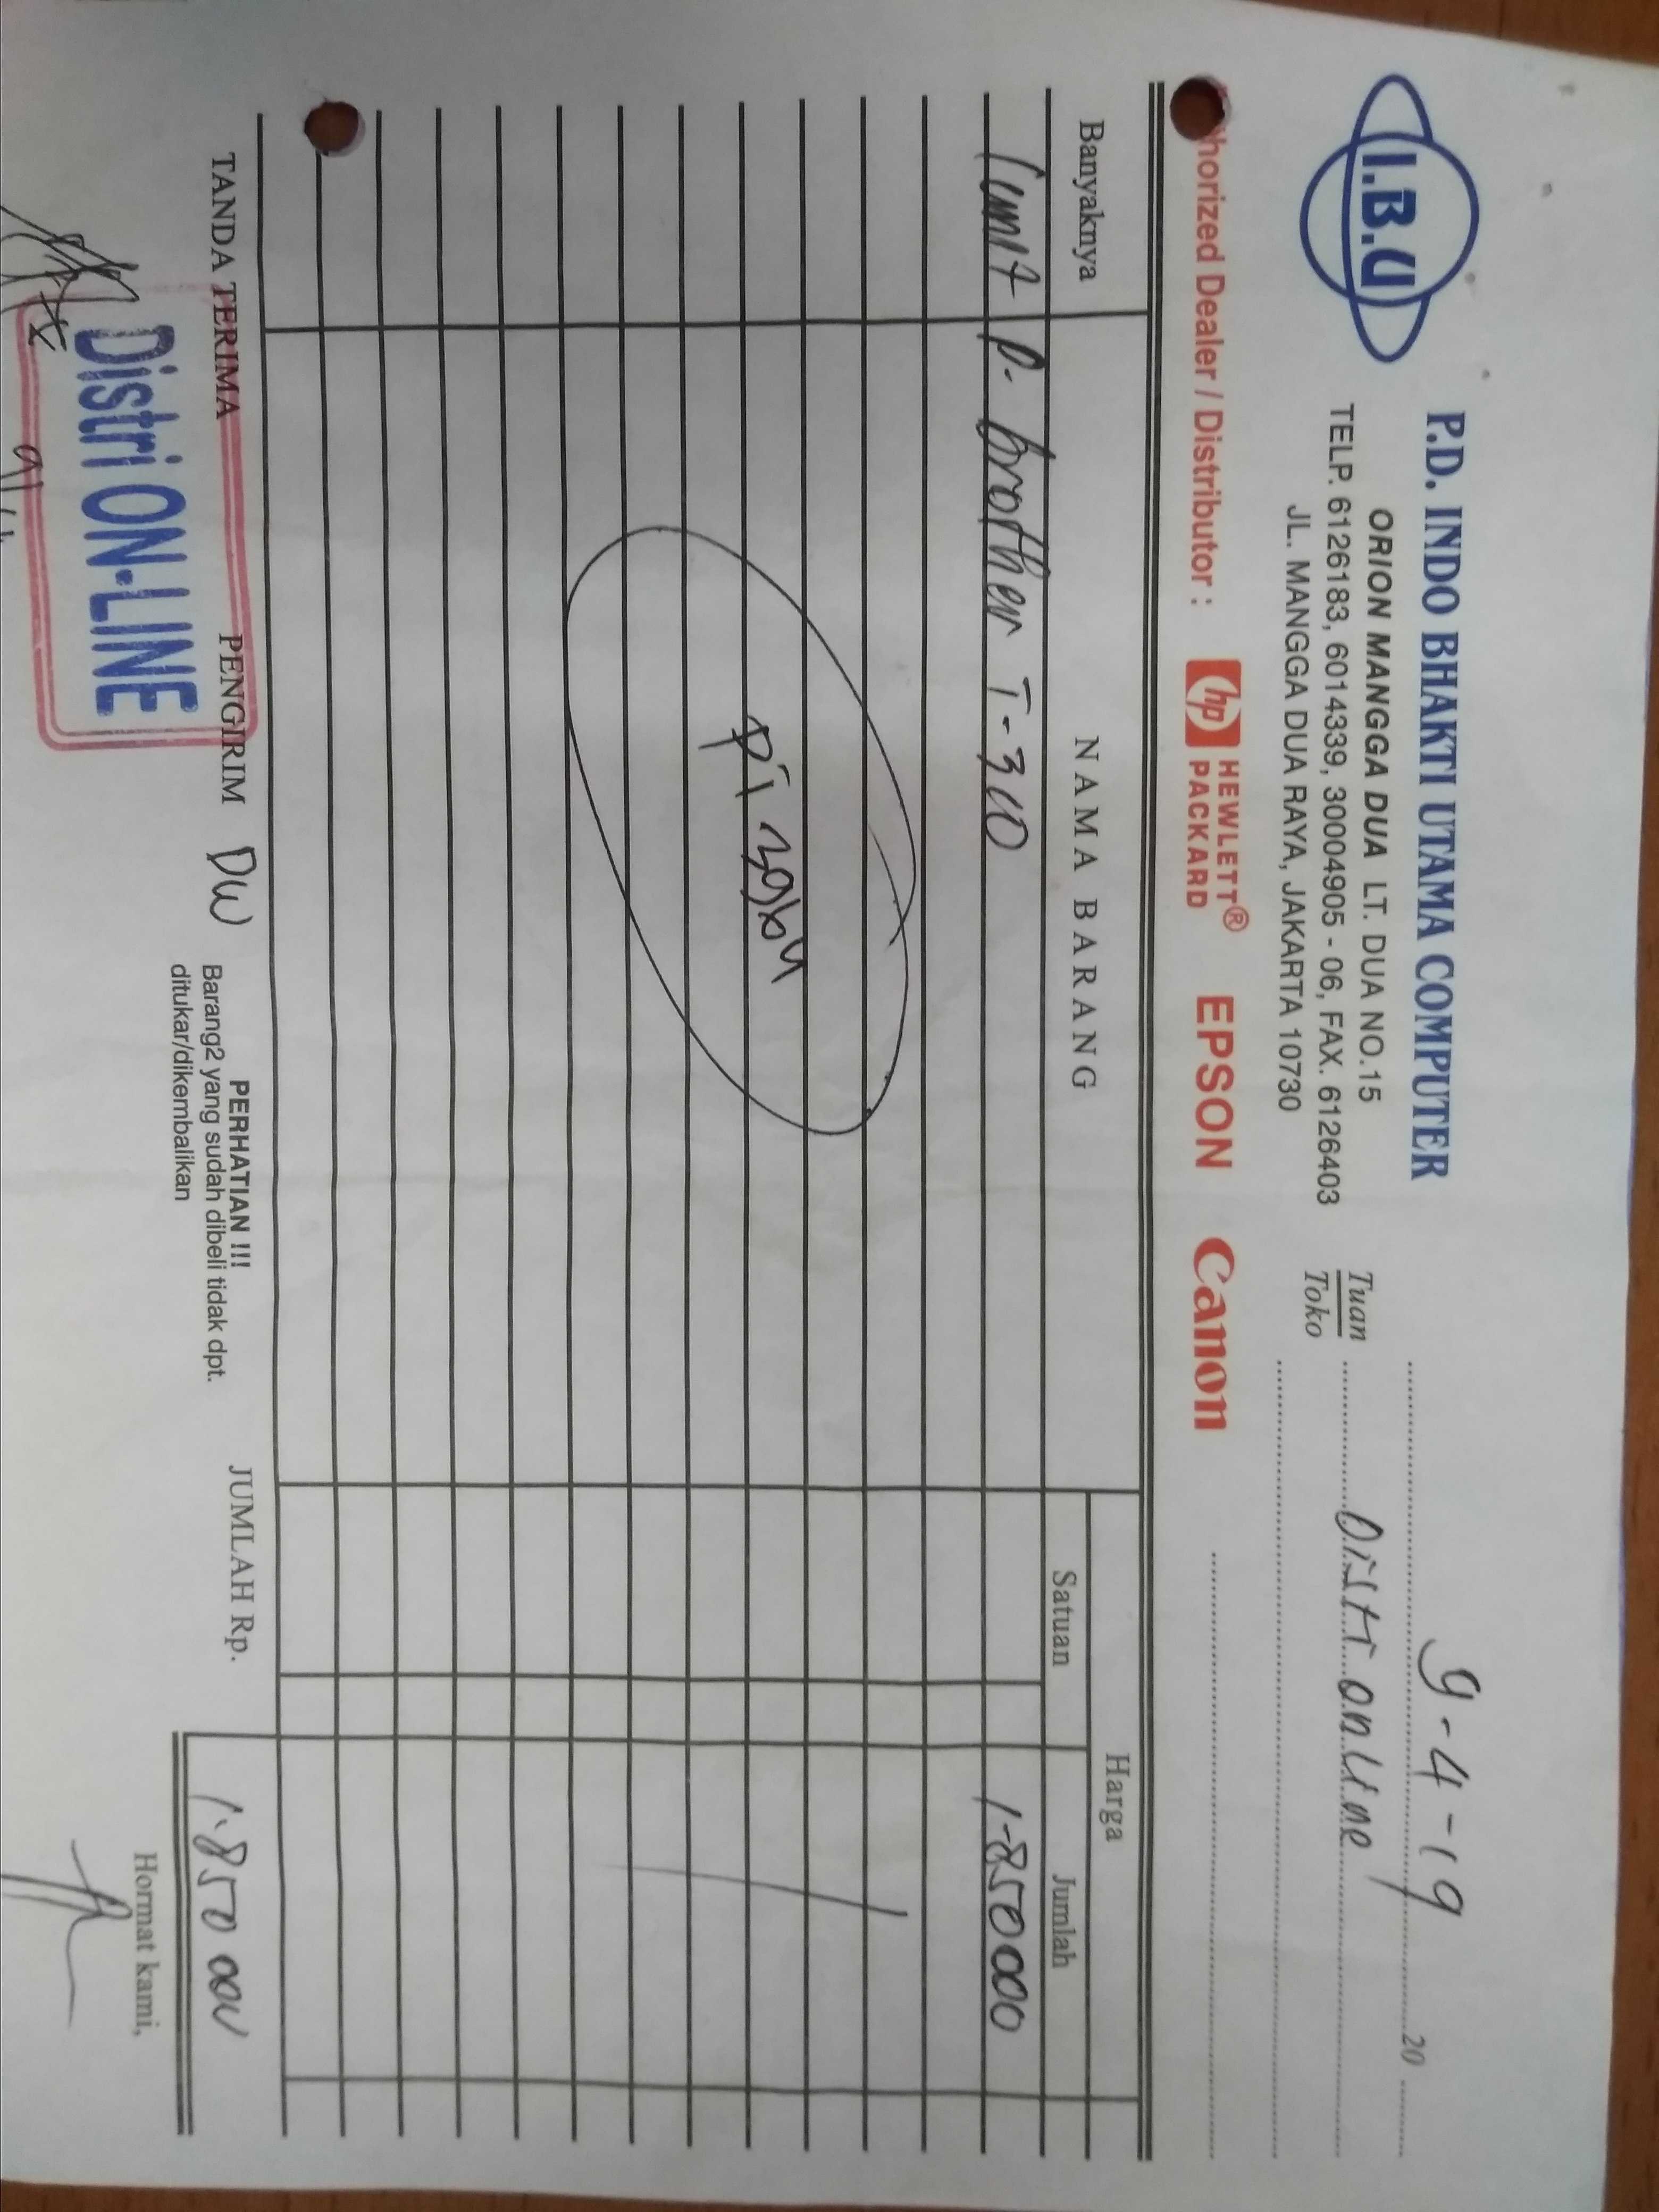 I.B.U
P.D. INDO BHAKTI UTAMA COMPUTER
ORION MANGGA DUA LT. DUA NO.15
TELP. 6126183, 6014339, 30004905 - 06, FAX. 6126403
JL. MANGGA DUA RAYA, JAKARTA 10730
9-4-19 20
Tuan Distr online
Toko
horized Dealer / Distributor : hp HEWLETT® PACKARD EPSON Canon
Banyaknya NAMA BARANG Harga
Satuan Jumlah
1 unit P. brother T-310 1.850000
TANDA TERIMA PENGIRIM DW PERHATIAN !!! JUMLAH Rp. 1.850 000
Barang2 yang sudah dibeli tidak dpt.
ditukar/dikembalikan
Distri ON-LINE
Hormat kami,